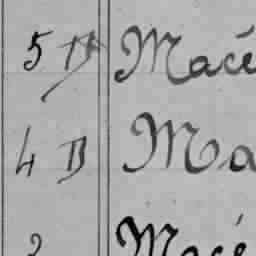 5 B Macé
4 B Ma
2 Macé